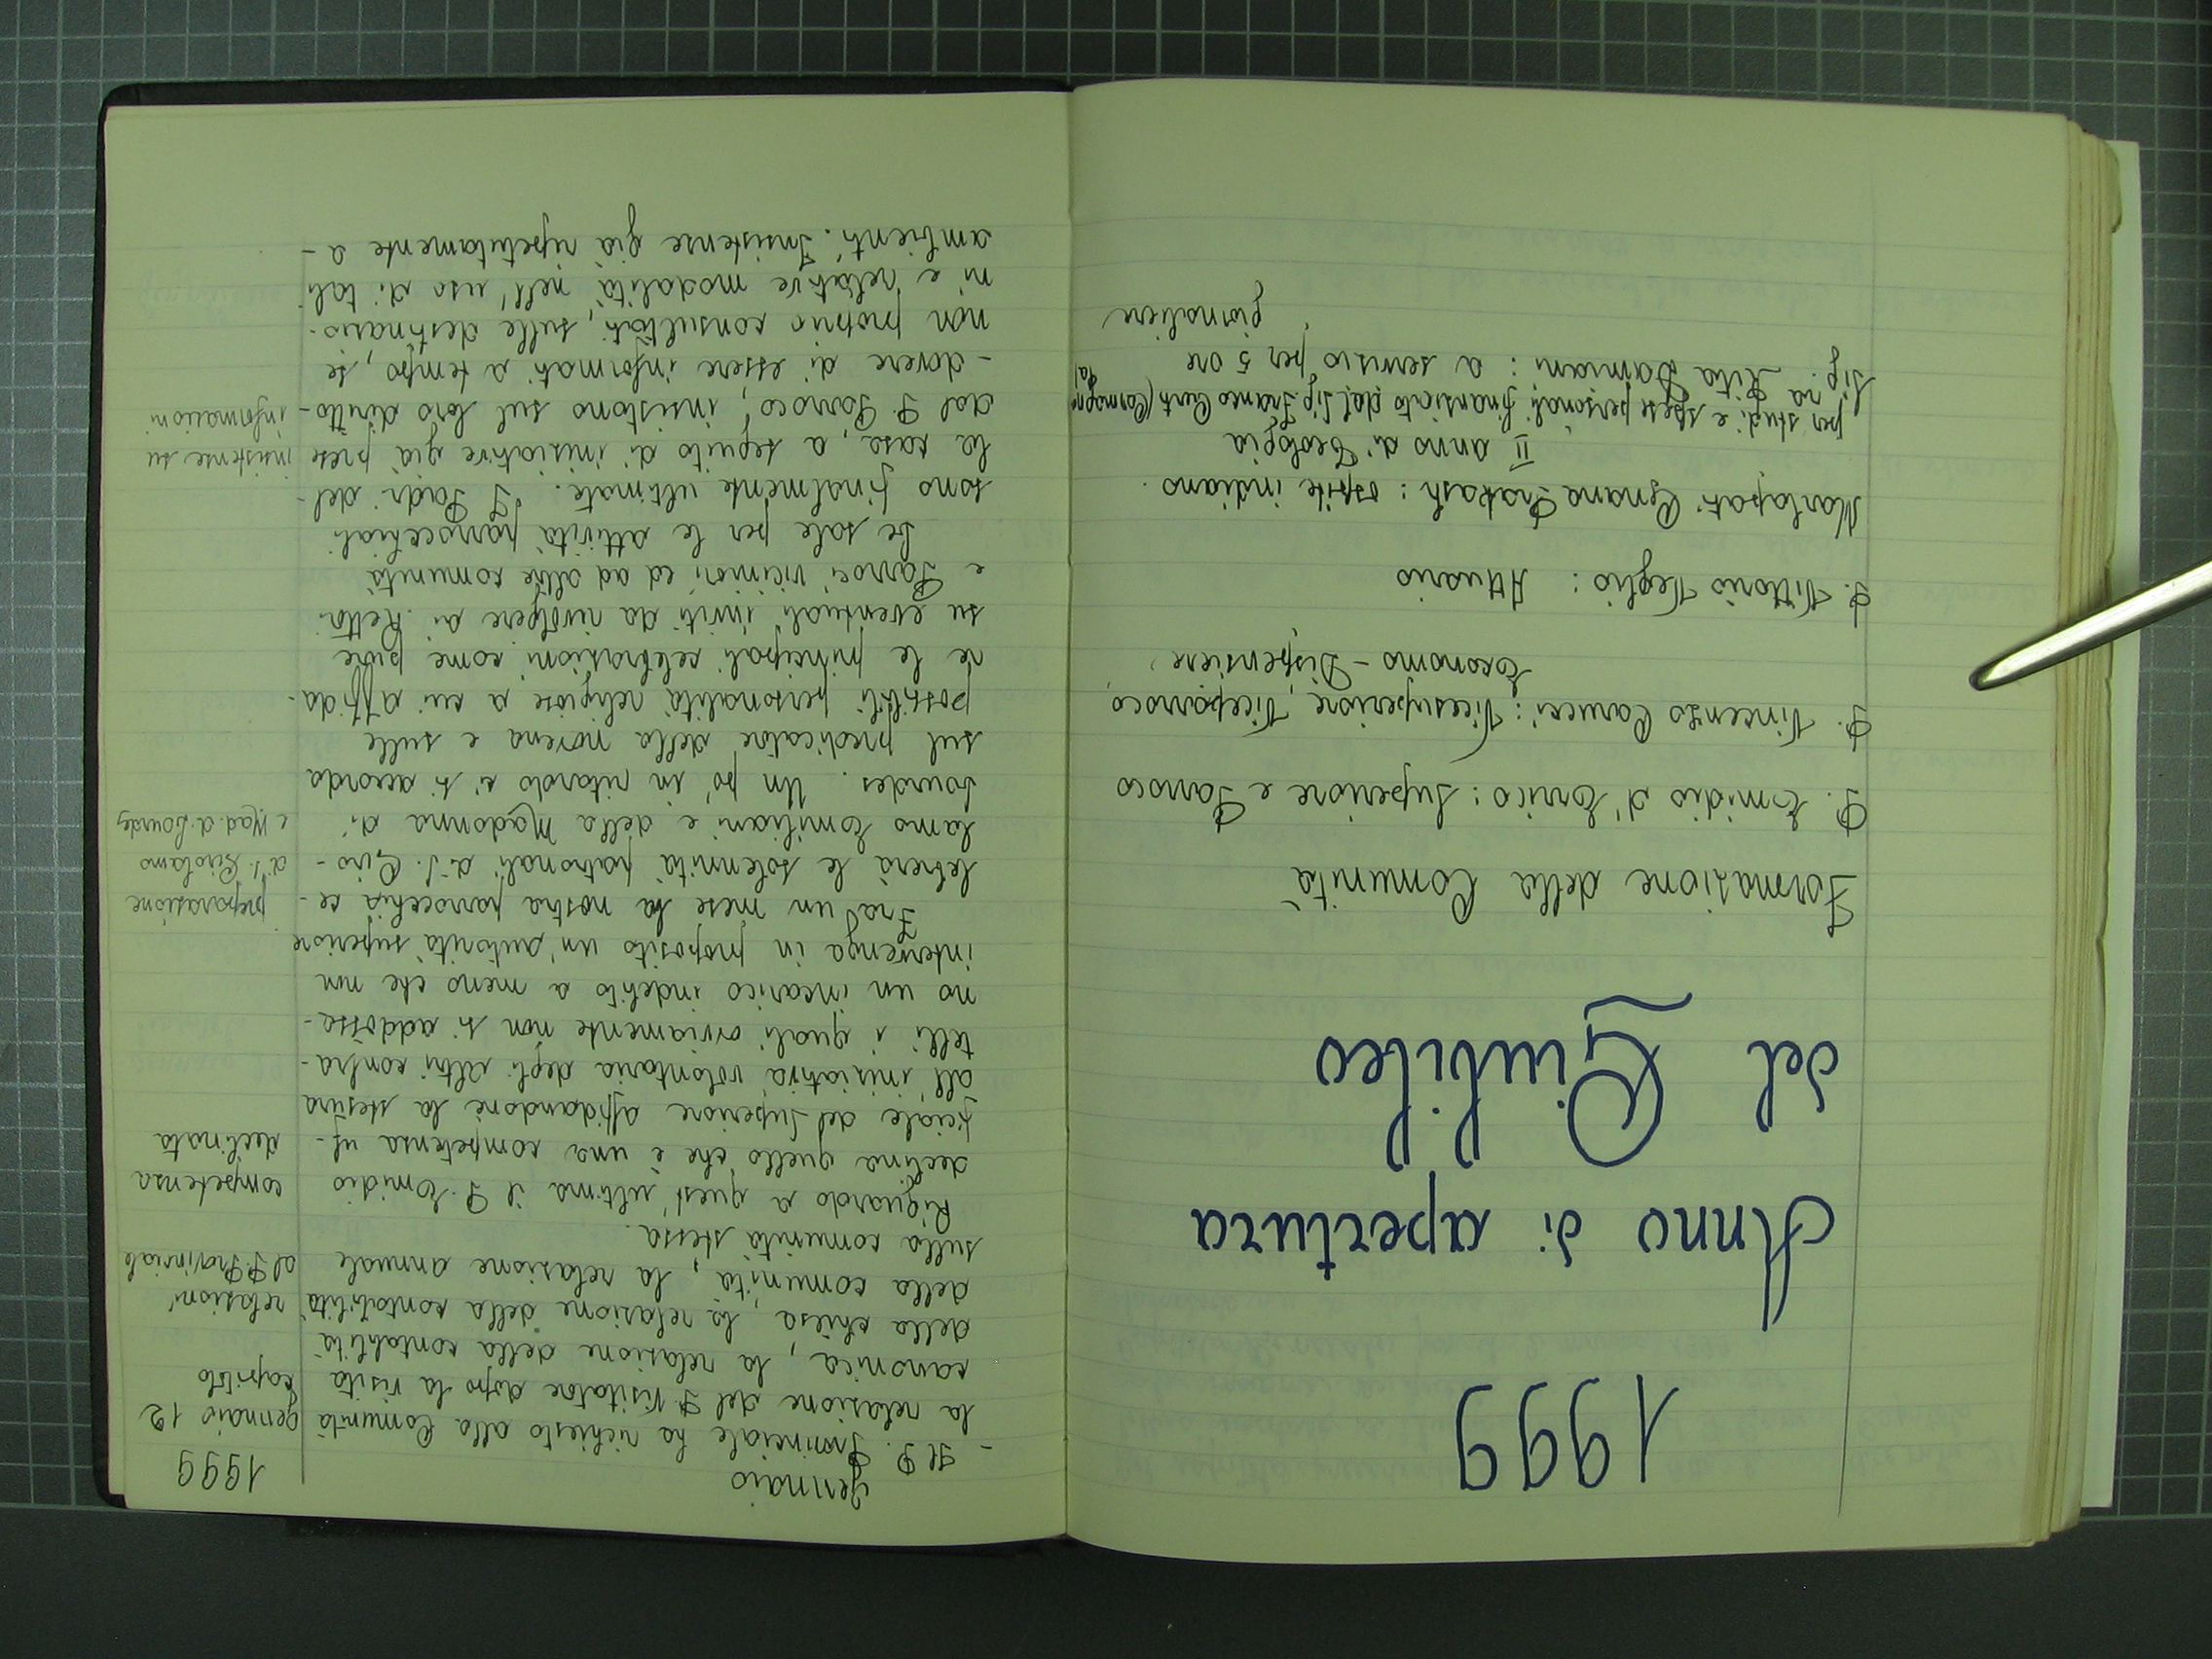 1999
Anno di apertura
del Giubileo
Formazione della Comunità
P. Emidio d'Errico: Superiore e Parroco
P. Vincenzo Carucci: Vicesuperiore, Viceparroco,
Economo - Dispensiere
P. Vittorio Veglio: Attuario
Marlapati Gnana Prakash: ospite indiano.
II anno di Teologia
per studi e spese personali finanziato dal Sig. Franco
Sig.ra Rita Damiani: a servizio per 5 ore
giornaliere
gennaio
1999
- Il P. Provinciale ha richiesto alla Comunità
gennaio 12
la relazione del P. Visitatore dopo la visita
capitolo
canonica, la relazione della contabilità
della chiesa, la relazione della contabilità
relazioni
della comunità, la relazione annuale
al P. Provinciale
sulla comunità stessa.
Riguardo a quest'ultima il P. Emidio
competenza
declina quello che è una competenza uf-
declinata
ficiale del Superiore affidandone la stesura
all'iniziativa volontaria degli altri confra-
telli i quali ovviamente non si addossa-
no un incarico indebito a meno che non
intervenga in proposito un'autorità superiore
Fra un mese la nostra parrocchia ce-
preparazione
lebrerà le solennità patronali di S. Giro-
di S. Girolamo
lamo Emiliani e della Madonna di
e Mad. d. Lourdes
Lourdes. Un po' in ritardo ci si accorda
sul predicatore della novena e sulle
possibili personalità religiose a cui affida-
re le principali celebrazioni come pure
su eventuali inviti da rivolgere ai Retto-
e Parroci viciniori ed ad altre comunità
Le sale per le attività parrocchiali
sono finalmente ultimate. I Padri del-
la casa, a seguito di iniziative già prese
insistenze su
dal P. Parroco, insistono sul loro diritto-
informazioni
- dovere di essere informati a tempo, se
non proprio consultati, sulle destinazio-
ni e relative modalità nell'uso di tali
ambienti. Insistenze già ripetutamente a-